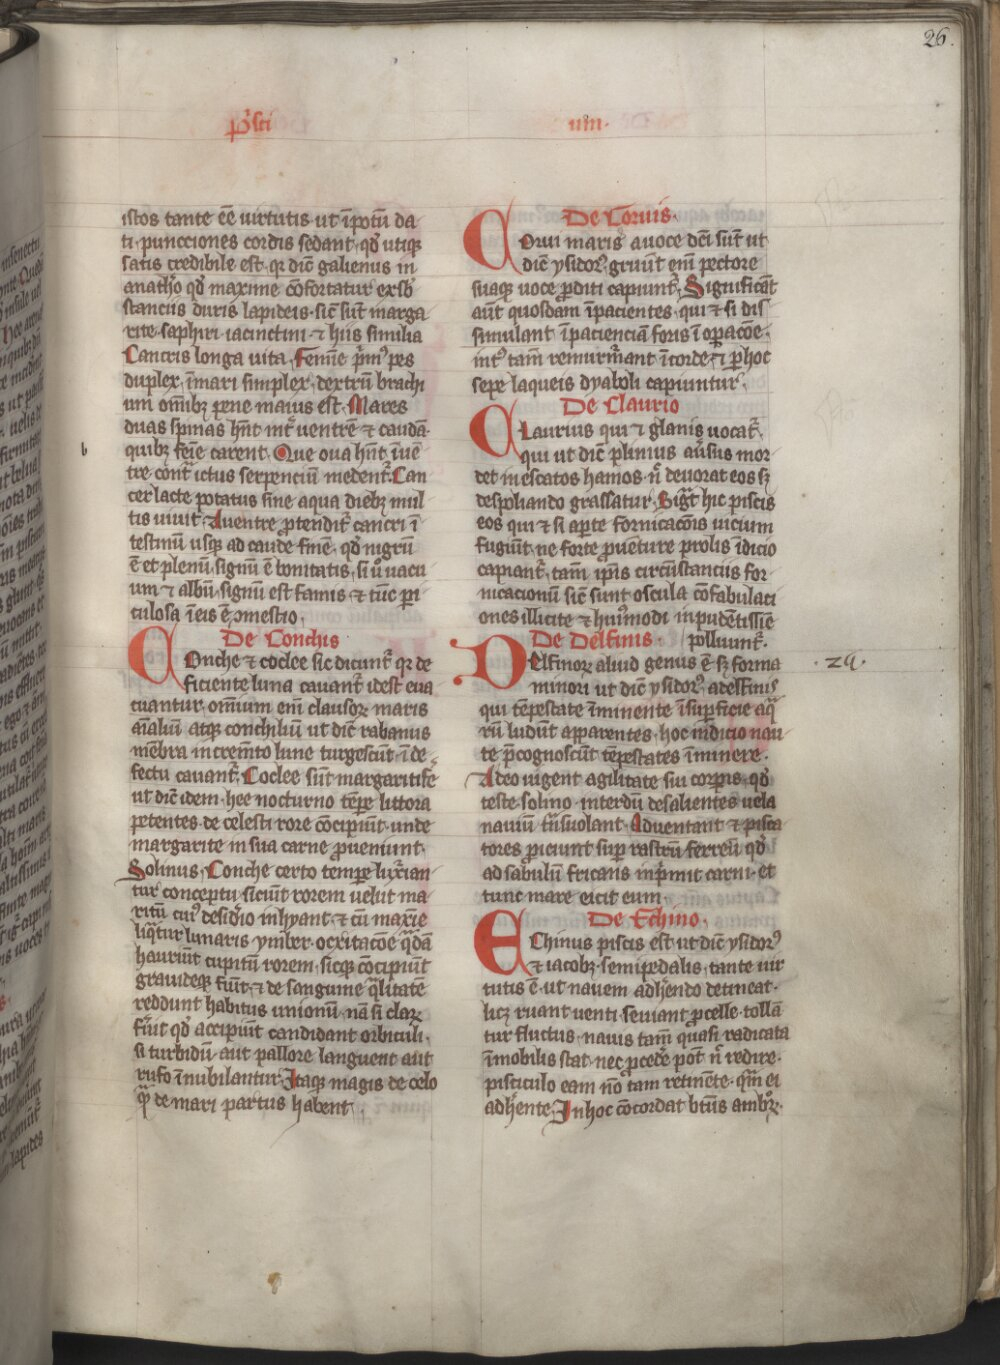 26.
P̄sci
um·
istos tante eē uirtutis· ut īpotū da
ti· puncciones cordis sedant· qd̄ utiq̄
satis credibile est· qr̄ dic̄ galienus in
anatho qd̄ maxime cōfortatur ex sb̄
stanciis duris lapideis· sic̄ sūt marga
rite· saphiri· iacinctini· ⁊ hiis similia
Cancris longa uita· Femīe pͥmꝰ pes
duplex· īmari simplex· dextrū brachi
um om̄ibꝫ pene maius est· Mares
duas spinas hn̄t int̄ uentrē ⁊ caudā·
b
quibꝫ feīe carent· Que oua hn̄t īuē
tre cont̄ ictus serpenciū medent̄· Can
cer lacte potatus sine aqua diebꝫ mul
tis uiuit· Auentre ꝓtendit̄ cancri ī
testinū usqꝫ ad caude finē· qd̄ nigrū
ē et plenū· signū ē bonitatis· si ū uacu
um ⁊ albū· signū est famis· ⁊ tūc ꝑi
culosa ī eis ē ꝯmestio·
De Conchis
Conche ⁊ coclee sic dicunt̄ qr̄ de
ficiente luna cauant̄ idest eua
cuantur· omnium eni clausoꝝ maris
aīaliū atqꝫ conchiliū ut dic̄ rabanus
mēbra in crem̄to lune turgescūt· ī de
fectu cauant̄· Coclee sūt margaritife
ut dic̄ idem· hee nocturno tēpe littora
petentes· de celesti rore cōcipiūt· unde
margarite in sua carne ꝓueniunt·
Solinus· Conche certo tempe luxͥan
tur conceptu· siciūt rorem uelut ma
ritū· cuiꝰ desidͥo inhyant· ⁊ cū maxīe
liqͣtur lunaris ymber· oscitacōe qͣdā
hauriūt cupitū rorem· sicqꝫ cōcipiūt
grauideqꝫ fiūt· ⁊ de sanguine qͣlitatē
reddunt habitus unionū· nā si claꝝ
fūit qd̄ accipiūt candidant orbiculi·
si turbidū· aut pallore languent aut
rufo īnubilantur· Itaqꝫ magis de celo
qͣ de mari partus habent·
De Coruis·
Corui maris auoce dc̄i sūt ut
dic̄ ysidorꝰ· gruūt enī pectore
suaqꝫ uoce ꝓditi capiunt̄· Significāt
aūt quosdam īpacientes· qui ⁊ si dis
simulant īpacienciā foris ī opacōe·
intꝰ tam̄ remurmͣant ī corde· ⁊ ꝑ hoc
sepe laqueis dyaboli capiuntur·
De Claurio
Claurius qui ⁊ glanis uocat̄·
qui ut dic̄ plinius auˀsus mor
det inescatos hamos· n̄ deuorat eos sꝫ
despoliando grassatur· Sigͣt hic piscis
eos qui ⁊ si aperte fornicacōis uicium
fugiūt· ne forte ꝓuēture prolis īdicio
capiant̄· tam̄ ip̄is circūstanciis for
nicacionū sic̄ sunt oscula cōfabulaci
ones illicite ⁊ huiꝰmodi inpudētissīe
De Delfinis· polluunt̄·
Delfinoꝝ aliud genus ē sꝫ forma
minori ut dic̄ ysidorꝰ· adelfinis
· 24 ·
qui tēpestate īminente īsupficie aqͣ
rū ludūt apparentes· hoc indicio nau
te p̄cognoscūt tēpestates īminere·
Adeo uigent agilitate sui corpis· qd̄
teste solino· interdū desalientes uela
nauiū tn̄suolant· Aduentant ⁊ pisca
tores ꝓiciunt suꝑ rastrū ferreū qd̄
ad sabulū fricans inp̄mit carni· et
tunc mare eicit eum
De Echino·
Echinus piscis est ut dic̄ ysidorꝰ
⁊ iacobꝫ· semipedalis· tante uir
tutis ē· ut nauem adhendo detineat·
licꝫ ruant uenti· seuiant ꝓcelle· tollā
tur fluctus· nauis tam̄ quasi radicata
īmobilis stat· nec ꝓcede pōt n̄ redire·
pisciculo eam nō tam retinēte· qͣm ei
adhente· In hoc cōcordat btūs ambꝝ·